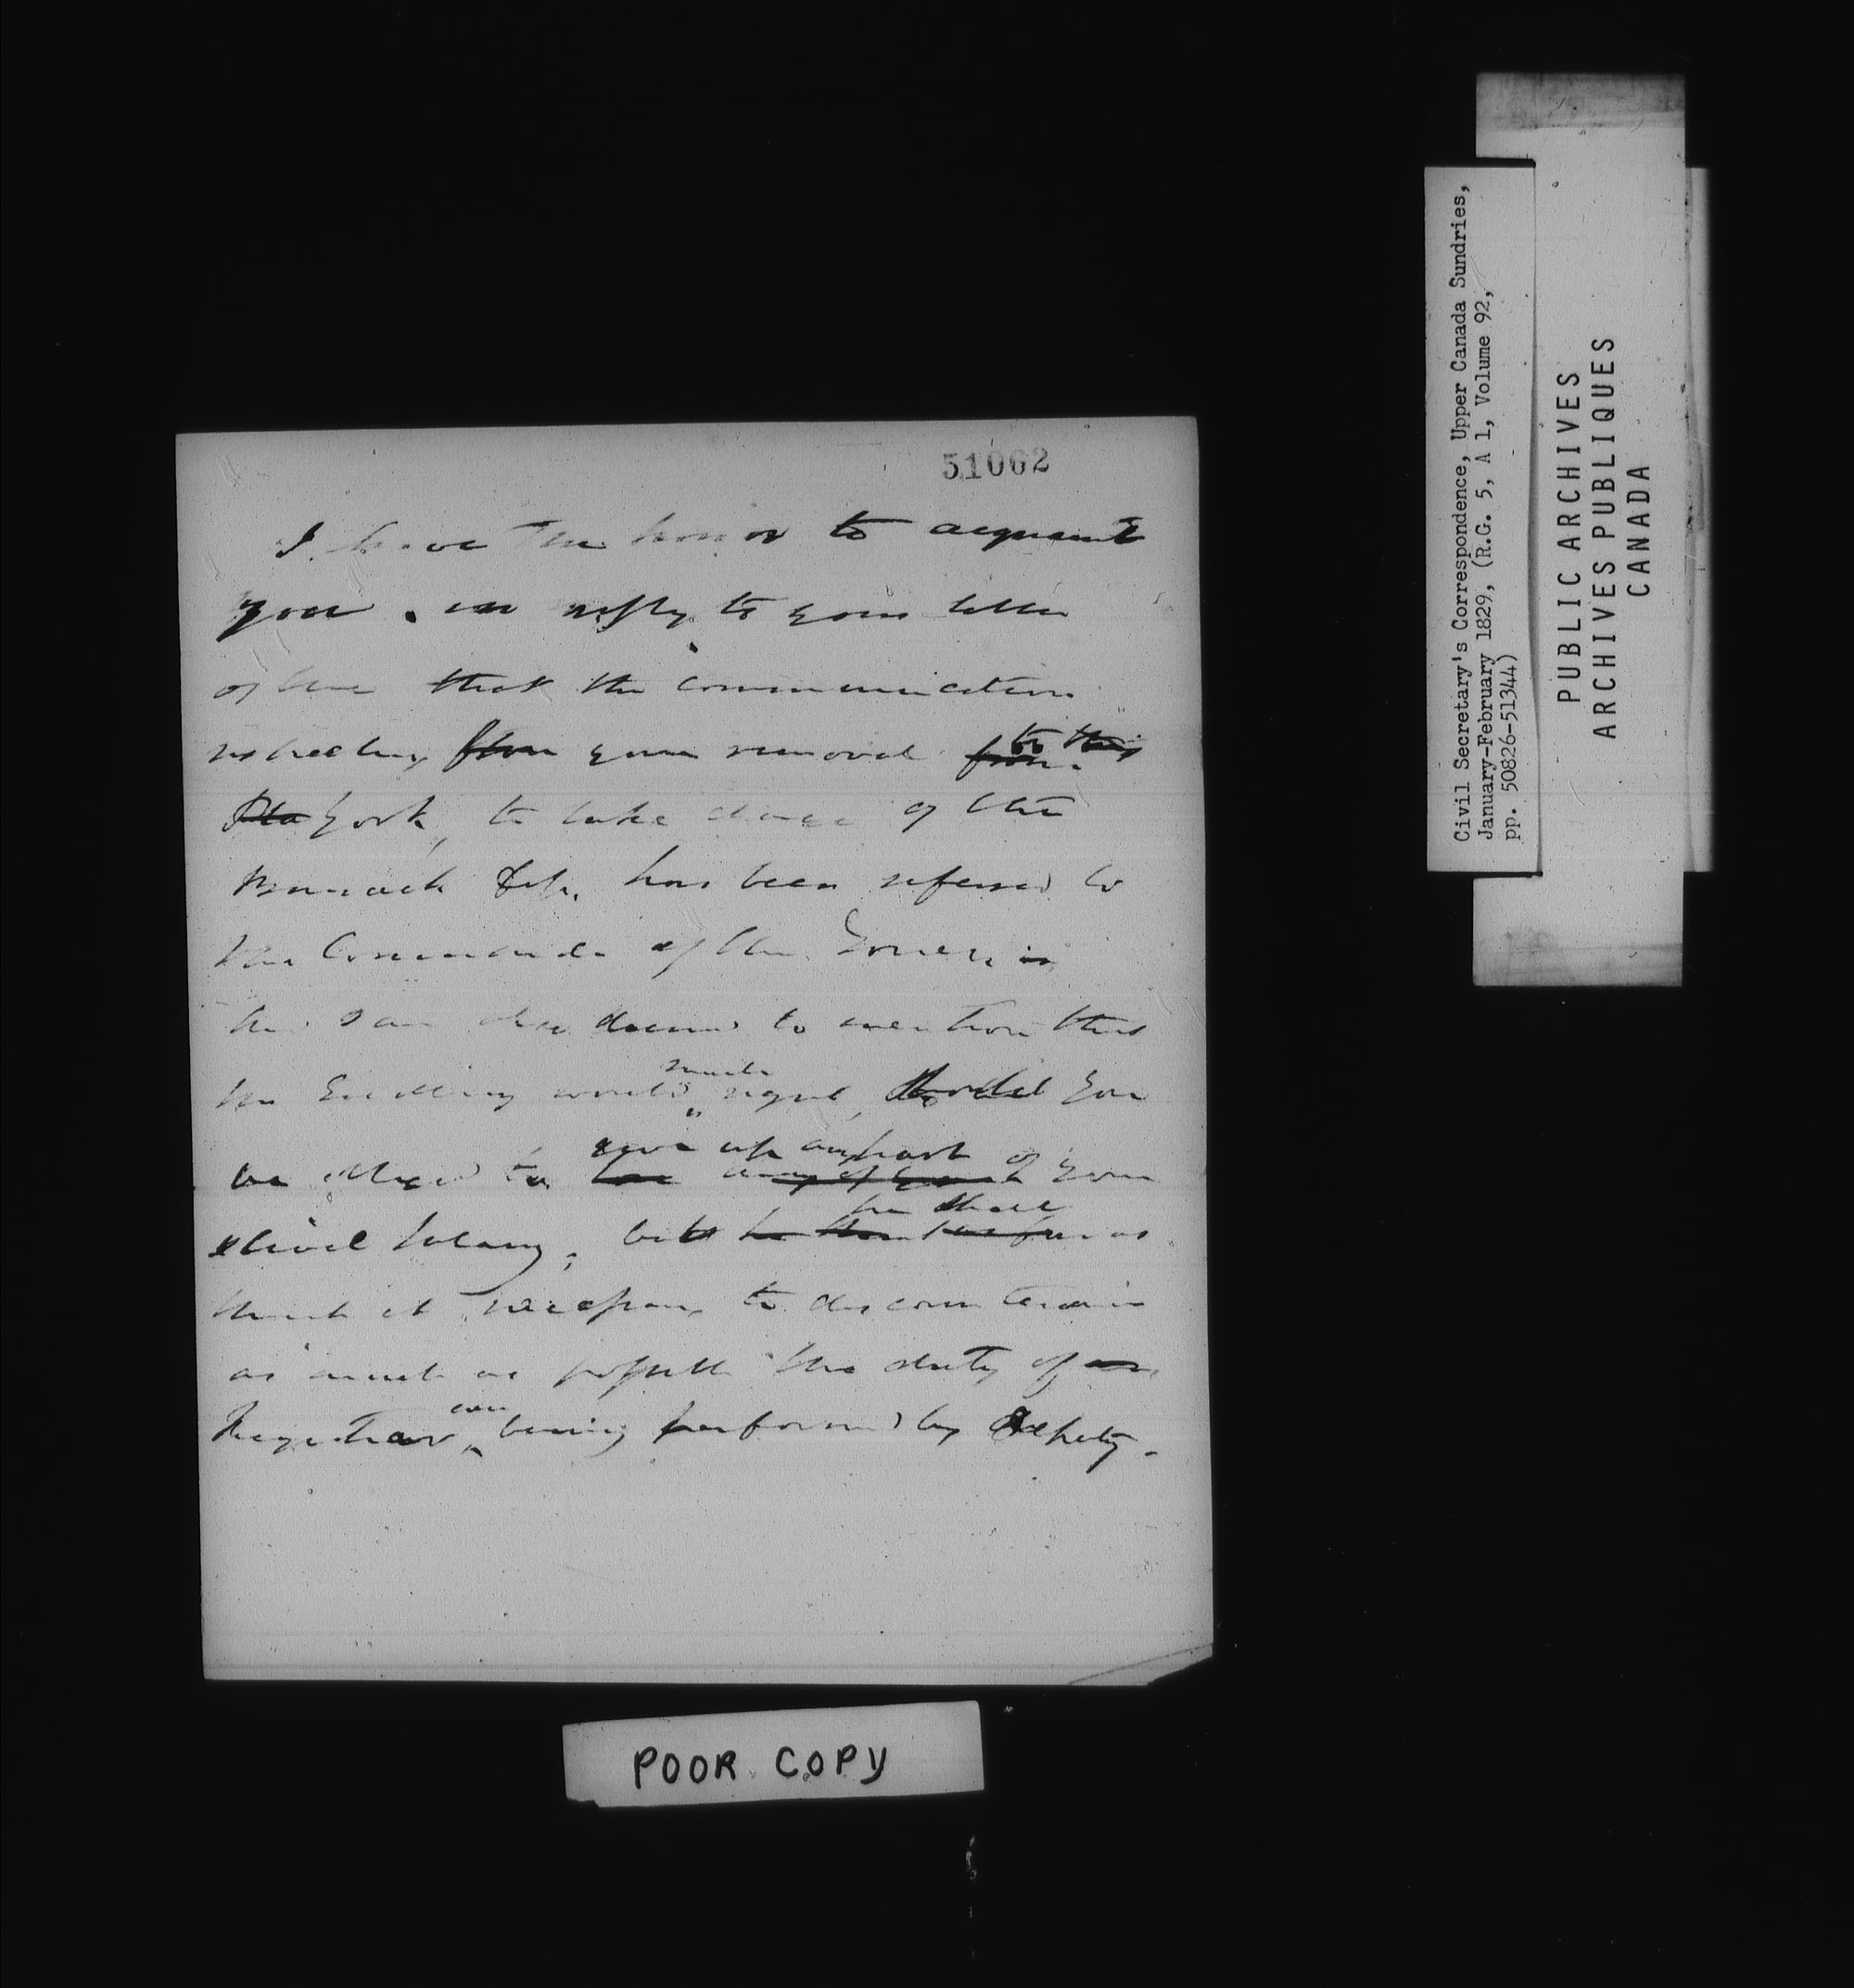 51002
I have the honor to acquaint
you . in reply to your letter
of the that the communication
respecting from your removal from to this
Pla York, to take charge of the
Barrack Dep. has been referred to
the Commander of the Forces, in
the I am also desired to mention that
His Excellency would much regret, should you
be obliged to give up any part of your
Civil Salary; but he shall
think it necessary to discountenance
as much as possible the duty of an
Registrar ever being performed by Deputy.
POOR COPY
Civil Secretary's Correspondence, Upper Canada Sundries,
January-February 1829, (R.G. 5, A 1, Volume 92,
pp. 50826-51344)
PUBLIC ARCHIVES
ARCHIVES PUBLIQUES
CANADA